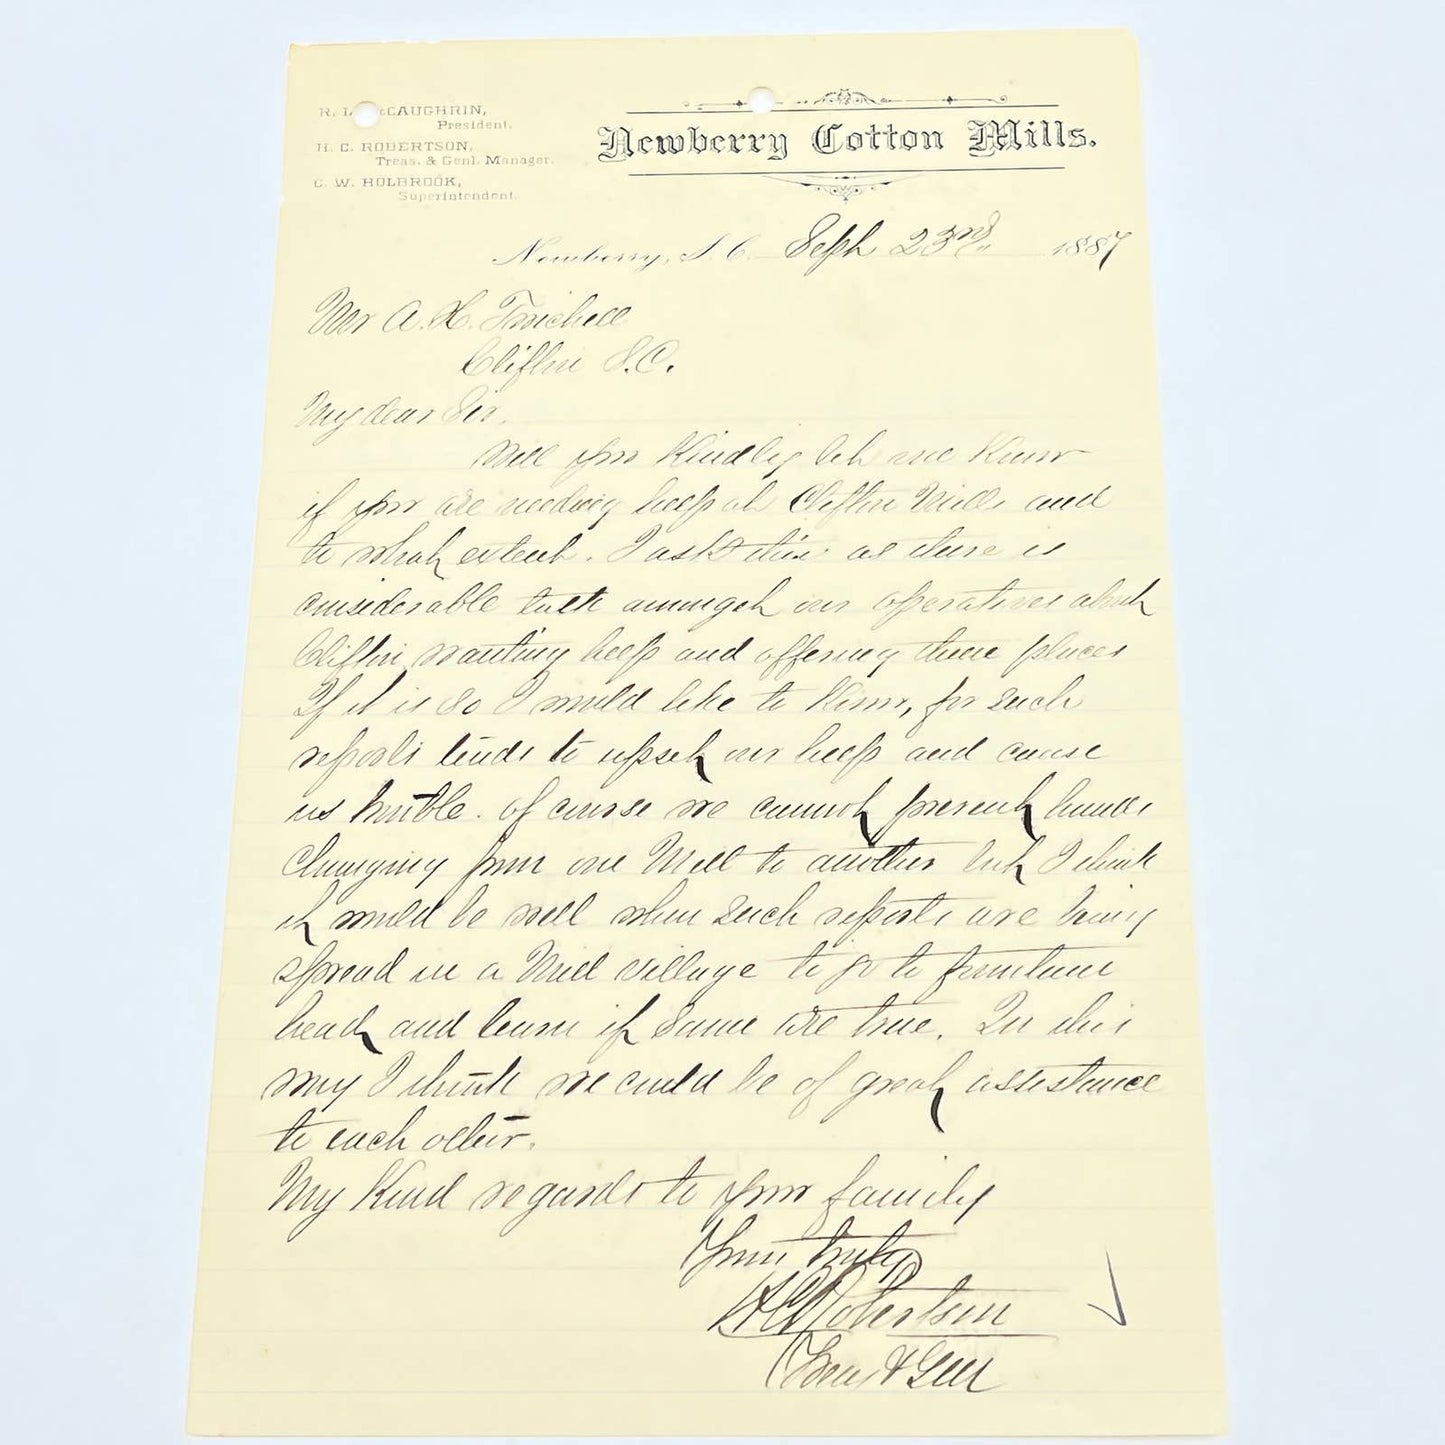 R. L. McCAUGHRIN,
President.
H. C. ROBERTSON,
Treas. & Genl. Manager.
C. W. HOLBROOK,
Superintendent.
Newberry Cotton Mills.
Newberry, S. C. Sept 23rd 1887
Mr A. H. Twichell
Clifton S.C.
My dear Sir,
Will you Kindly let me Know
if you are needing help at Clifton Mills and
to what extent. I ask this as there is
considerable talk amongst our operatives about
Clifton wanting help and offering them places
If it is so I would like to Know, for such
reports tends to upset our help and cause
us trouble. Of course we cannot prevent hands
changing from one Mill to another but I think
it would be well when such reports are being
spread in a Mill village to go to fountain
head and learn if same are true. In this
way I think we could be of great assistance
to each other.
My Kind regards to your family
Yours truly
H C Robertson
Treas & GM